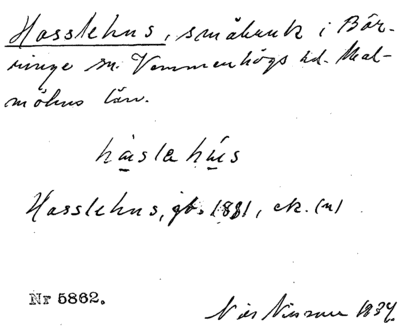 Hasslehus, småbruk i Bör-
ringe sn. Vemmenhögs hd. Mal-
möhus län.
hàslahús
Hasslehus, gb. 1881, ek. (n)
Nr 5862.
Nils Nilsson 1934.